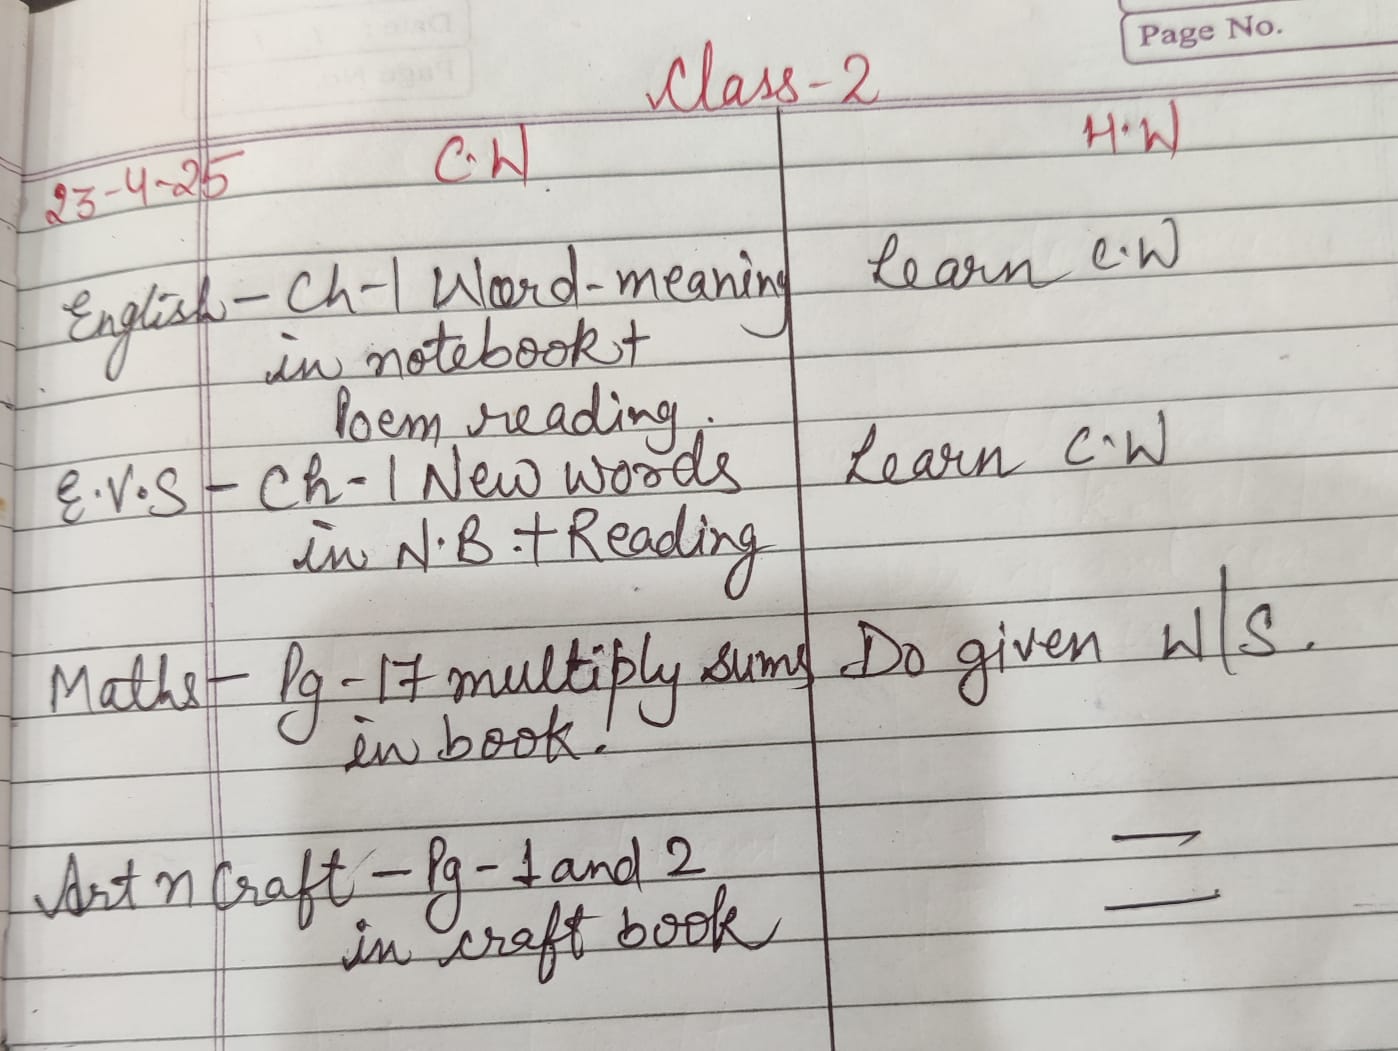 Page No.
Class-2
23-4-25 C.W H.W
English - Ch-1 Word-meaning Learn C.W
in notebook +
Poem reading.
E.V.S - Ch-1 New words Learn C.W
in N.B. + Reading
Maths - Pg-17 multiply sums Do given W/S.
in book.
Art n Craft - Pg-1 and 2
in craft book